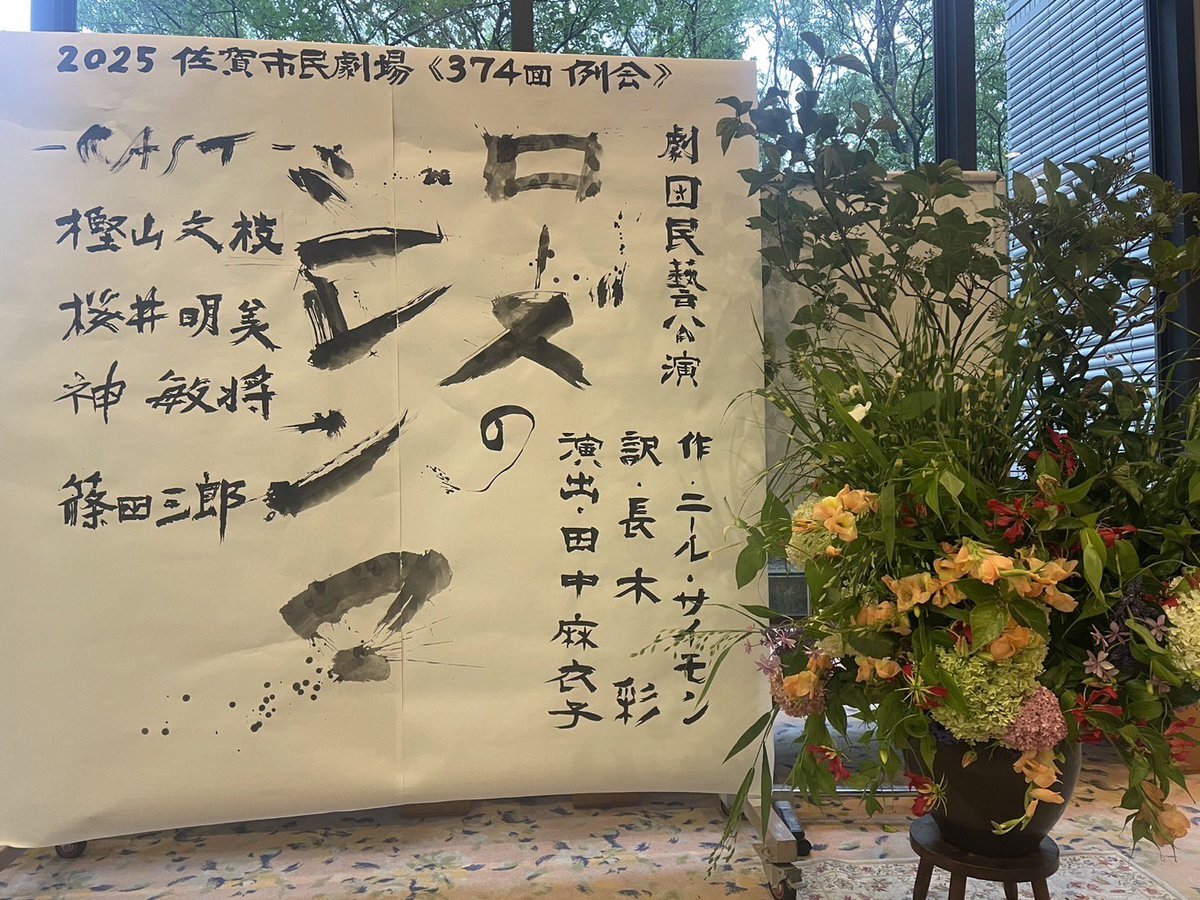 2025 佐賀市民劇場《374回 例会》
劇団民藝公演
作・ニール・サイモン
訳・長木 彩
演出・田中麻衣子
ローズの
ジレンマ
-CAST-
樫山文枝
桜井明美
神 敏将
篠田三郎